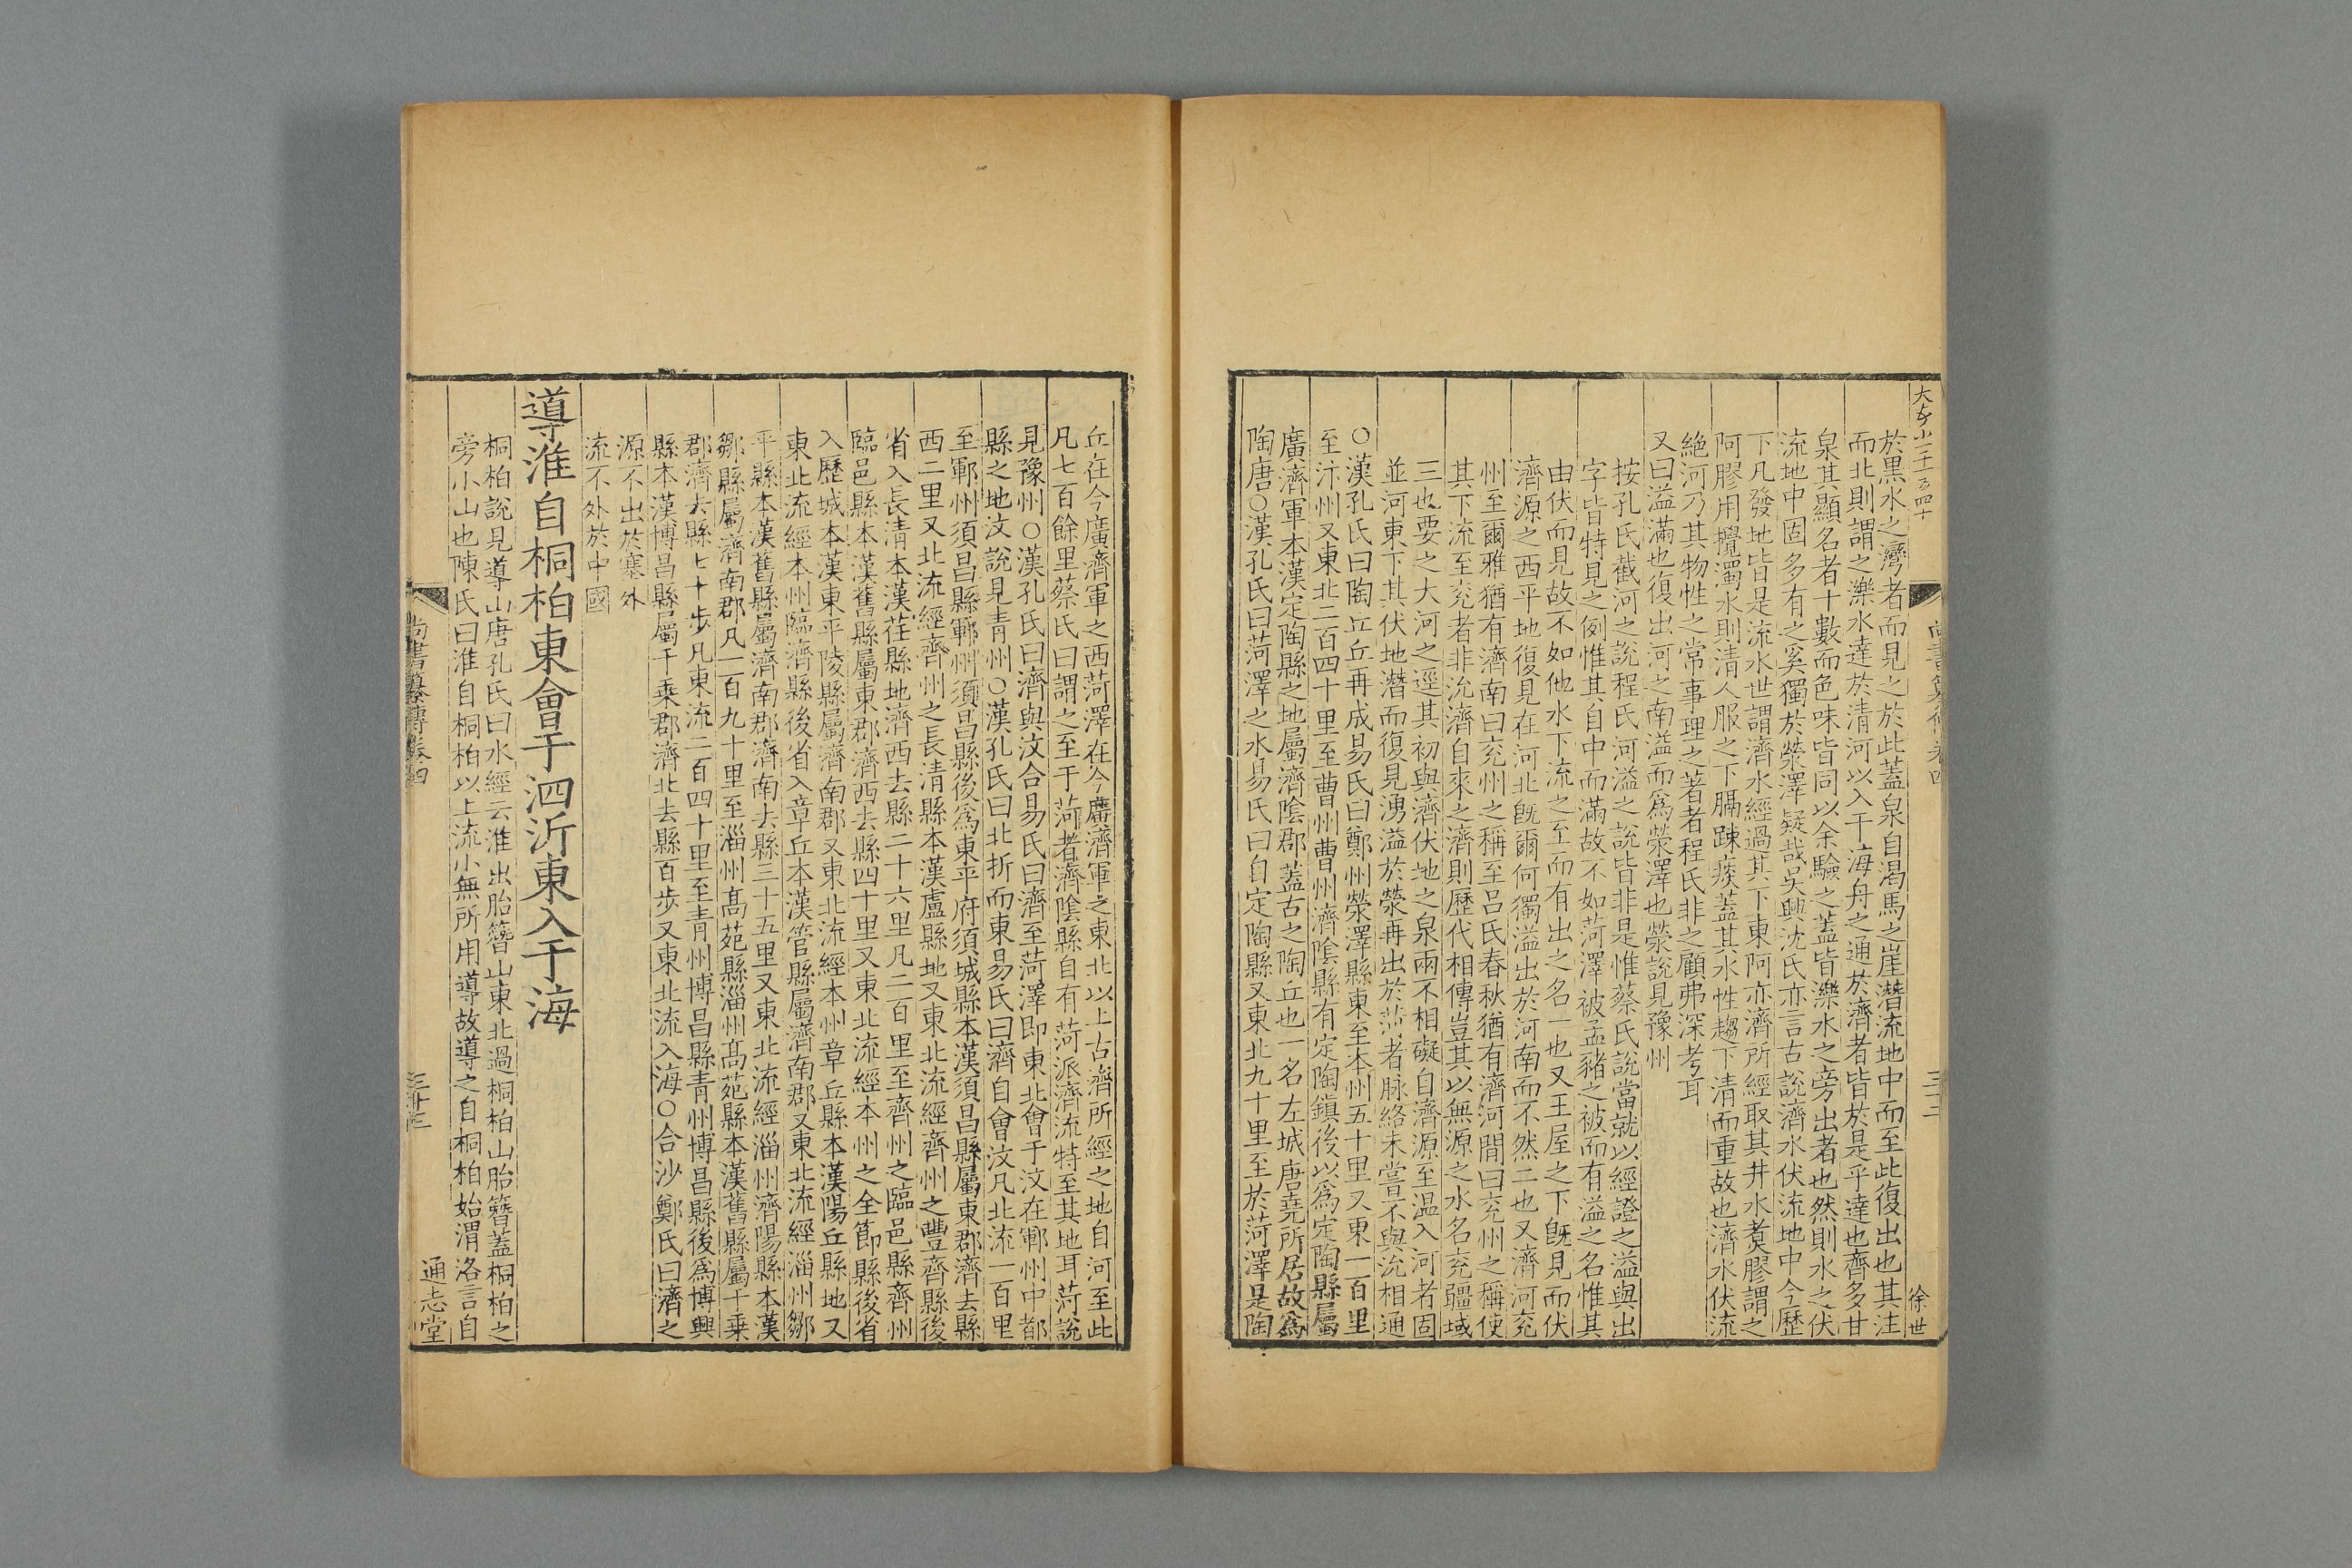 大夲小二千一百四十
尚書纂傳卷四
三十二
徐世
於黑水之灣者而見之於此蓋泉自渴馬之崖潛流地中而至此復出也其注
而北則謂之濼水達於清河以入于海舟之通於濟者皆於是乎達也齊多甘
泉其顯名者十數而色味皆同以余驗之蓋皆濼水之旁出者也然則水之伏
流地中固多有之奚獨於滎澤疑哉吳興沈氏亦言古說濟水伏流地中今歷
下凡發地皆是流水世謂濟水經過其下東阿亦濟所經取其井水煑膠謂之
阿膠用攪濁水則清人服之下膈踈痰蓋其水性趨下清而重故也濟水伏流
絶河乃其物性之常事理之著者程氏非之顧弗深考耳
又曰溢滿也復出河之南溢而爲滎澤也滎說見豫州
按孔氏截河之說程氏河溢之說皆非是惟蔡氏說當就以經證之溢與出
字皆特見之例惟其自中而滿故不如菏澤被孟豬之被而有溢之名惟其
由伏而見故不如他水下流之至而有出之名一也又王屋之下旣見而伏
濟源之西平地復見在河北旣爾何獨溢出於河南而不然二也又濟河兖
州至爾雅猶有濟南曰兖州之稱至呂氏春秋猶有濟河間曰兖州之稱使
其下流至兖者非沇濟自來之濟則歷代相傳豈其以無源之水名兖疆域
三也要之大河之逕其初與濟伏地之泉兩不相礙自濟源至温入河者固
並河東下其伏地潛而復見湧溢於滎再出於菏者脉絡未嘗不與沇相通
○漢孔氏曰陶丘丘再成易氏曰鄭州滎澤縣東至本州五十里又東一百里
至汴州又東北二百四十里至曹州曹州濟隂縣有定陶鎮後以爲定陶縣屬
廣濟軍本漢定陶縣之地屬濟隂郡蓋古之陶丘也一名左城唐堯所居故爲
陶唐○漢孔氏曰菏澤之水易氏曰自定陶縣又東北九十里至於菏澤是陶
丘在今廣濟軍之西菏澤在今廣濟軍之東北以上古濟所經之地自河至此
凡七百餘里蔡氏曰謂之至于菏者濟隂縣自有菏派濟流特至其地耳菏說
見豫州○漢孔氏曰濟與汶合易氏曰濟至菏澤即東北會于汶在鄆州中都
縣之地汶說見青州○漢孔氏曰北折而東易氏曰濟自會汶凡北流一百里
至鄆州須昌縣鄆州須昌縣後爲東平府須城縣本漢須昌縣屬東郡濟去縣
西二里又北流經齊州之長清縣本漢盧縣地又東北流經齊州之豐齊縣後
省入長清本漢茌縣地濟西去縣二十六里凡二百里至齊州之臨邑縣齊州
臨邑縣本漢舊縣屬東郡濟西去縣四十里又東北流經本州之全節縣後省
入歷城本漢東平陵縣屬濟南郡又東北流經本州章丘縣本漢陽丘縣地又
東北流經本州臨濟縣後省入章丘本漢管縣屬濟南郡又東北流經淄州鄒
平縣本漢舊縣屬濟南郡濟南去縣三十五里又東北流經淄州濟陽縣本漢
鄒縣屬濟南郡凡一百九十里至淄州髙苑縣淄州髙苑縣本漢舊縣屬千乗
郡濟去縣七十步凡東流二百四十里至青州博昌縣青州博昌縣後爲博興
縣本漢博昌縣屬千乗郡濟北去縣百步又東北流入海○合沙鄭氏曰濟之
源不出於塞外
流不外於中國
導淮自桐柏東會于泗沂東入于海
桐柏說見導山唐孔氏曰水經云淮出胎簪山東北過桐柏山胎簪蓋桐柏之
旁小山也陳氏曰淮自桐柏以上流小無所用導故導之自桐柏始渭洛言自
尚書纂傳卷四
三十三
通志堂